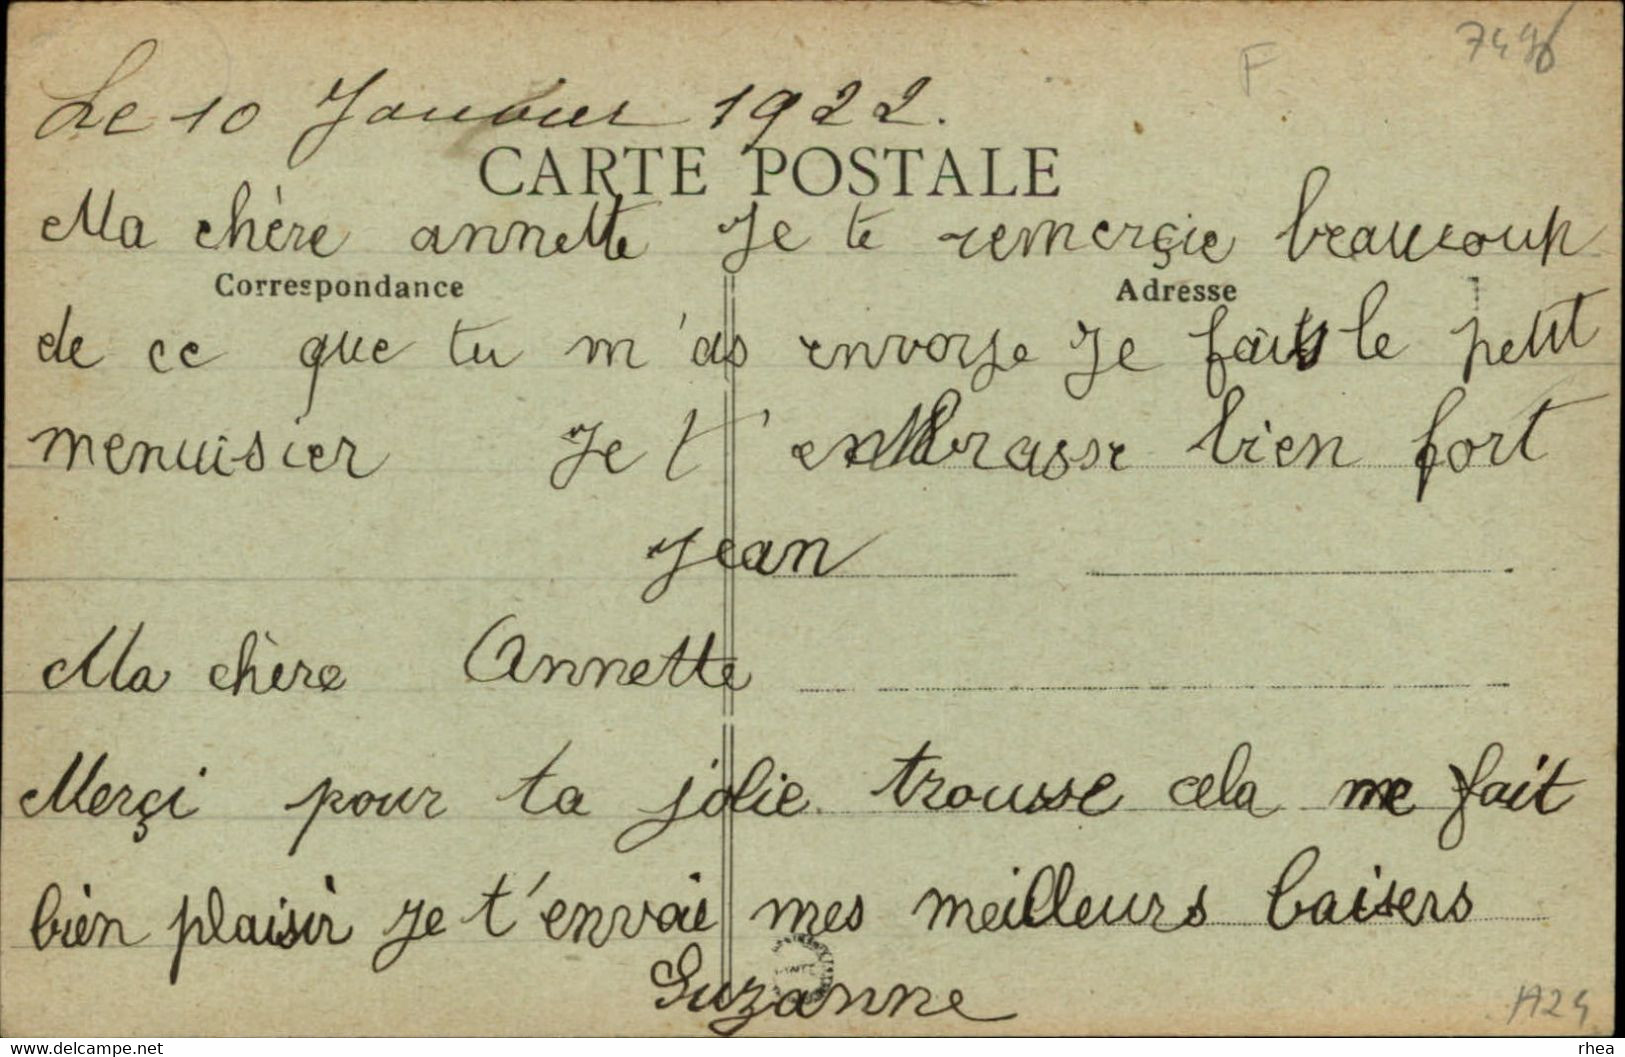 7496
F
Le 10 Janvier 1922.
CARTE POSTALE
Ma chère annette Je te remerçie beaucoup
Correspondance Adresse
de ce que tu m'as envoye Je fais le petit
menuisier Je t'embrasse bien fort
Jean
Ma chère Annette
Merçi pour ta jolie trousse cela me fait
bien plaisir Je t'envoie mes meilleurs baisers
Suzanne
A24
https://www.delcampe.net rhea